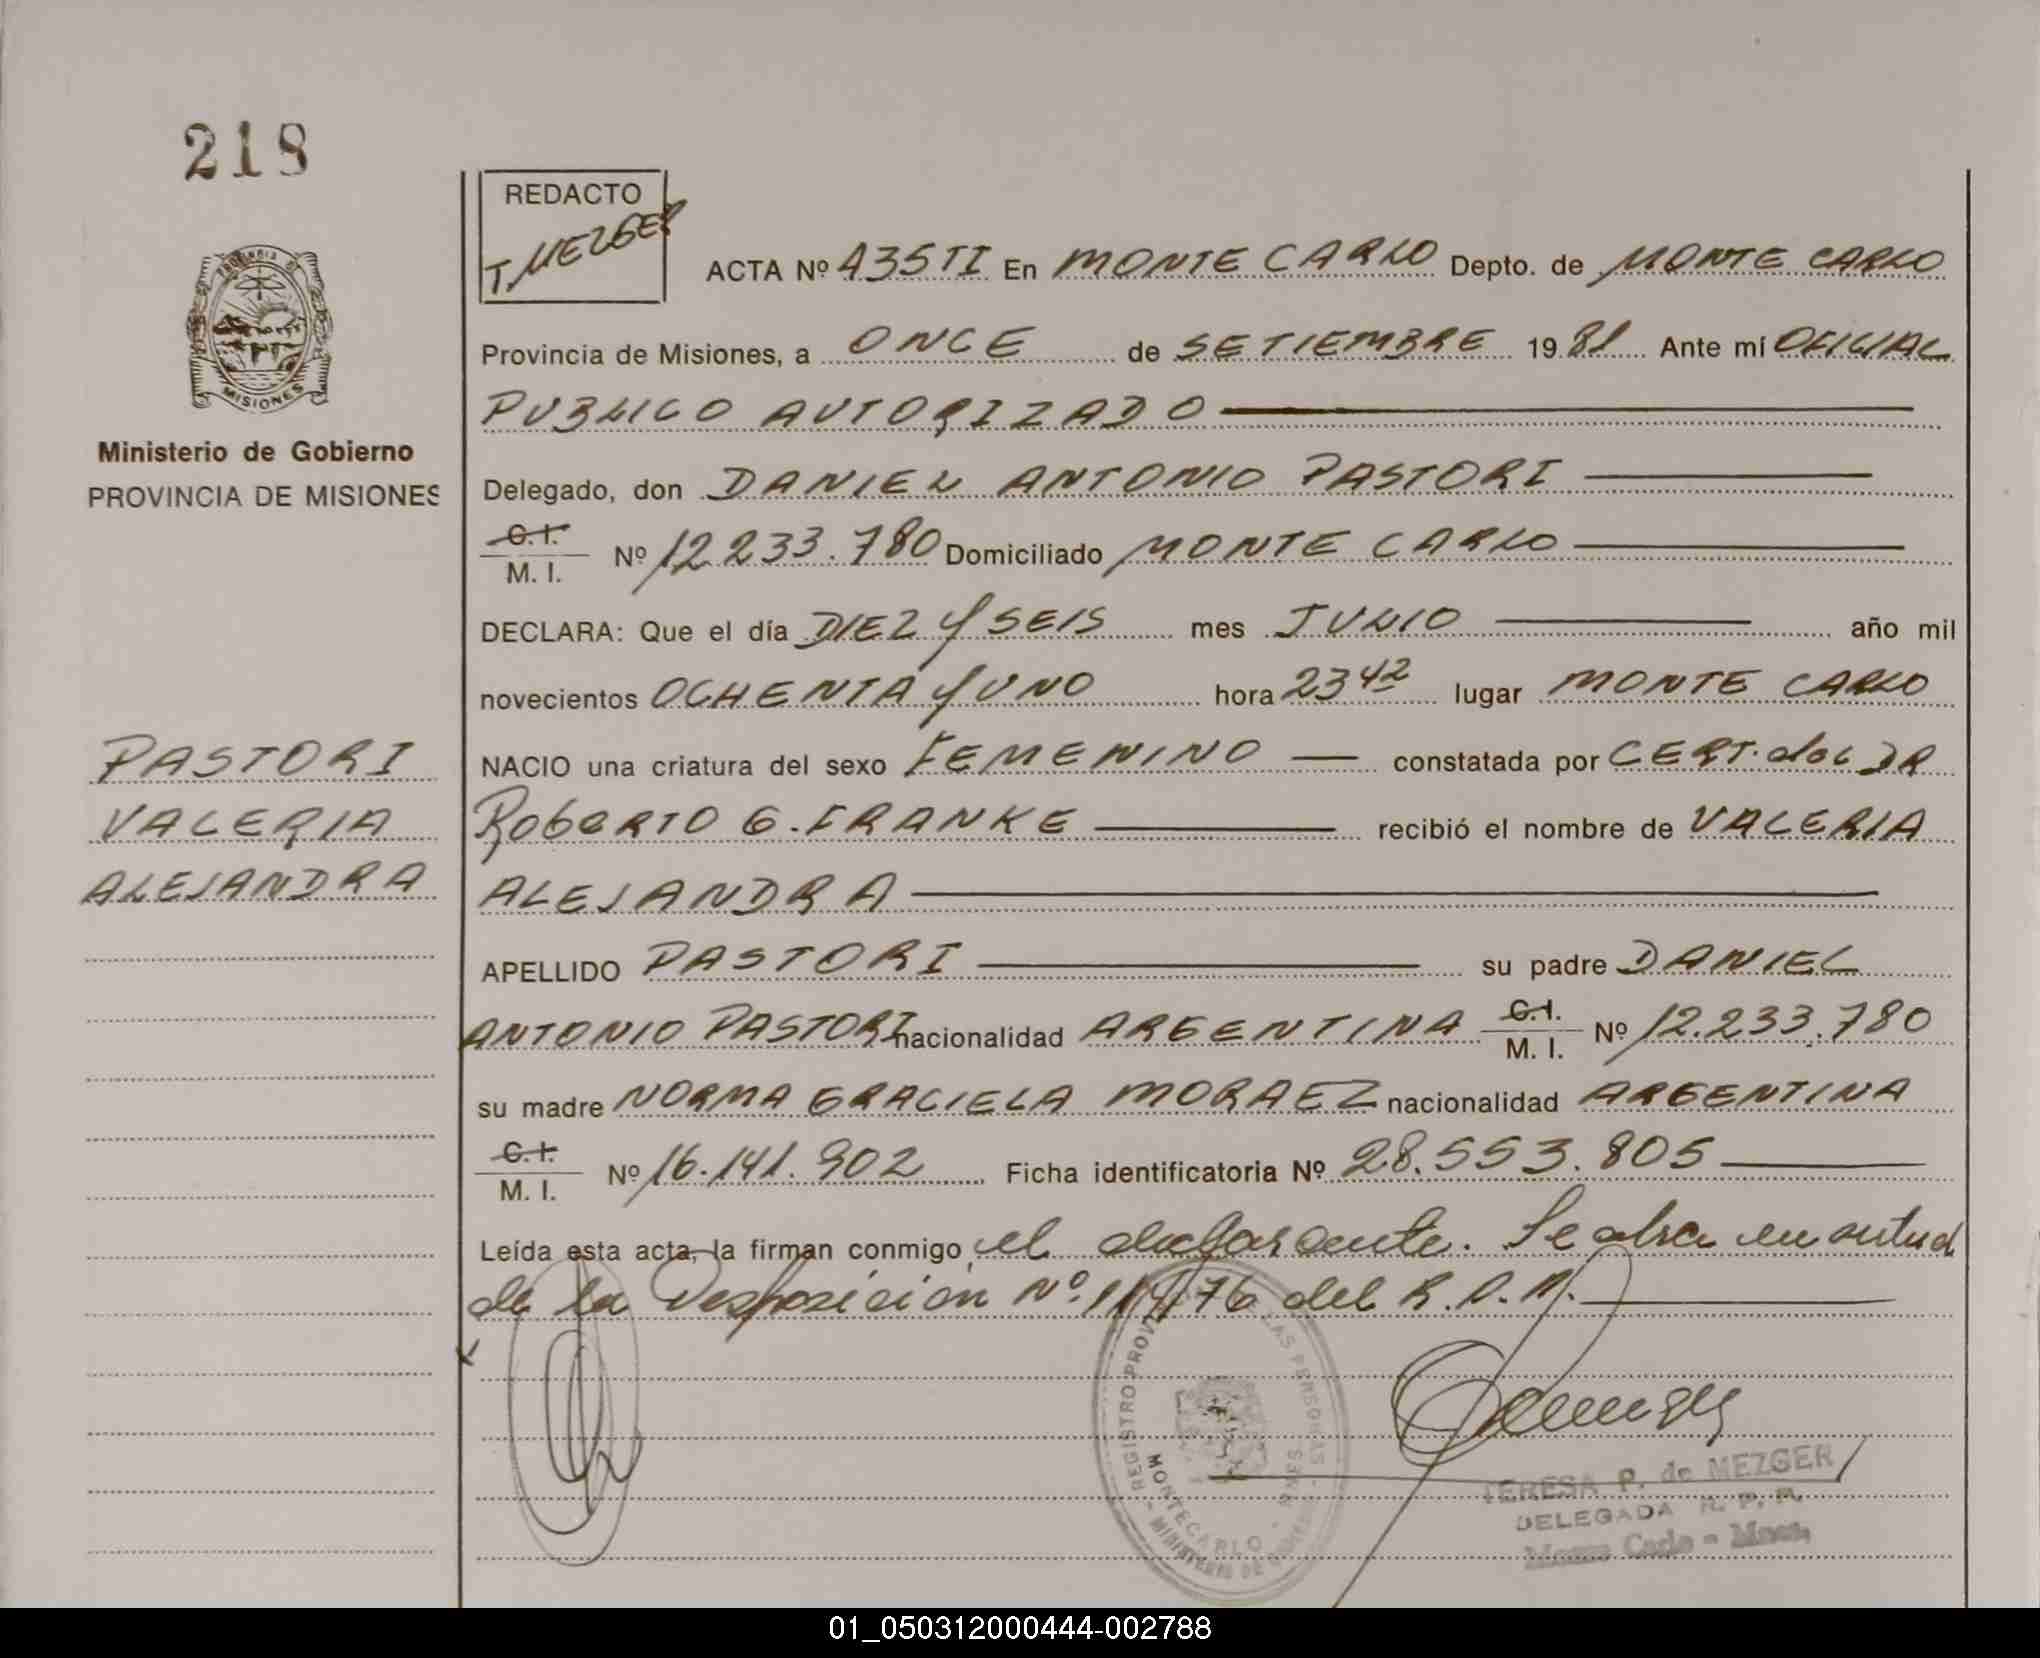 218
REDACTO
T. MEZGER
ACTA Nº 435 TI En MONTE CARLO Depto. de MONTE CARLO
Provincia de Misiones, a ONCE de SETIEMBRE 1981 Ante mí OFICIAL
PUBLICO AUTORIZADO
Ministerio de Gobierno
PROVINCIA DE MISIONES
Delegado, don DANIEL ANTONIO PASTORI
C.I. M. I. Nº 12.233.780 Domiciliado MONTE CARLO
DECLARA: Que el día DIEZ Y SEIS mes JULIO año mil
novecientos OCHENTA Y UNO hora 23 42 lugar MONTE CARLO
PASTORI
VALERIA
ALEJANDRA
NACIO una criatura del sexo FEMENINO constatada por CERT. del DR
ROBERTO G. FRANKE recibió el nombre de VALERIA
ALEJANDRA
APELLIDO PASTORI su padre DANIEL
ANTONIO PASTORI nacionalidad ARGENTINA C.I. M. I. Nº 12.233.780
su madre NORMA GRACIELA MORAEZ nacionalidad ARGENTINA
C.I. M. I. Nº 16.141.902 Ficha identificatoria Nº 28.553.805
Leída esta acta, la firman conmigo el declarante. Se labra en virtud
de la Disposición Nº 114/76 del R.P.P.
REGISTRO PROV LAS PERSONAS
MONTECARLO - MNES
MINISTERIO DE
TERESA P. de MEZGER
DELEGADA R. P. P.
Monte Carlo - Mnes.
MISIONES
01_050312000444-002788